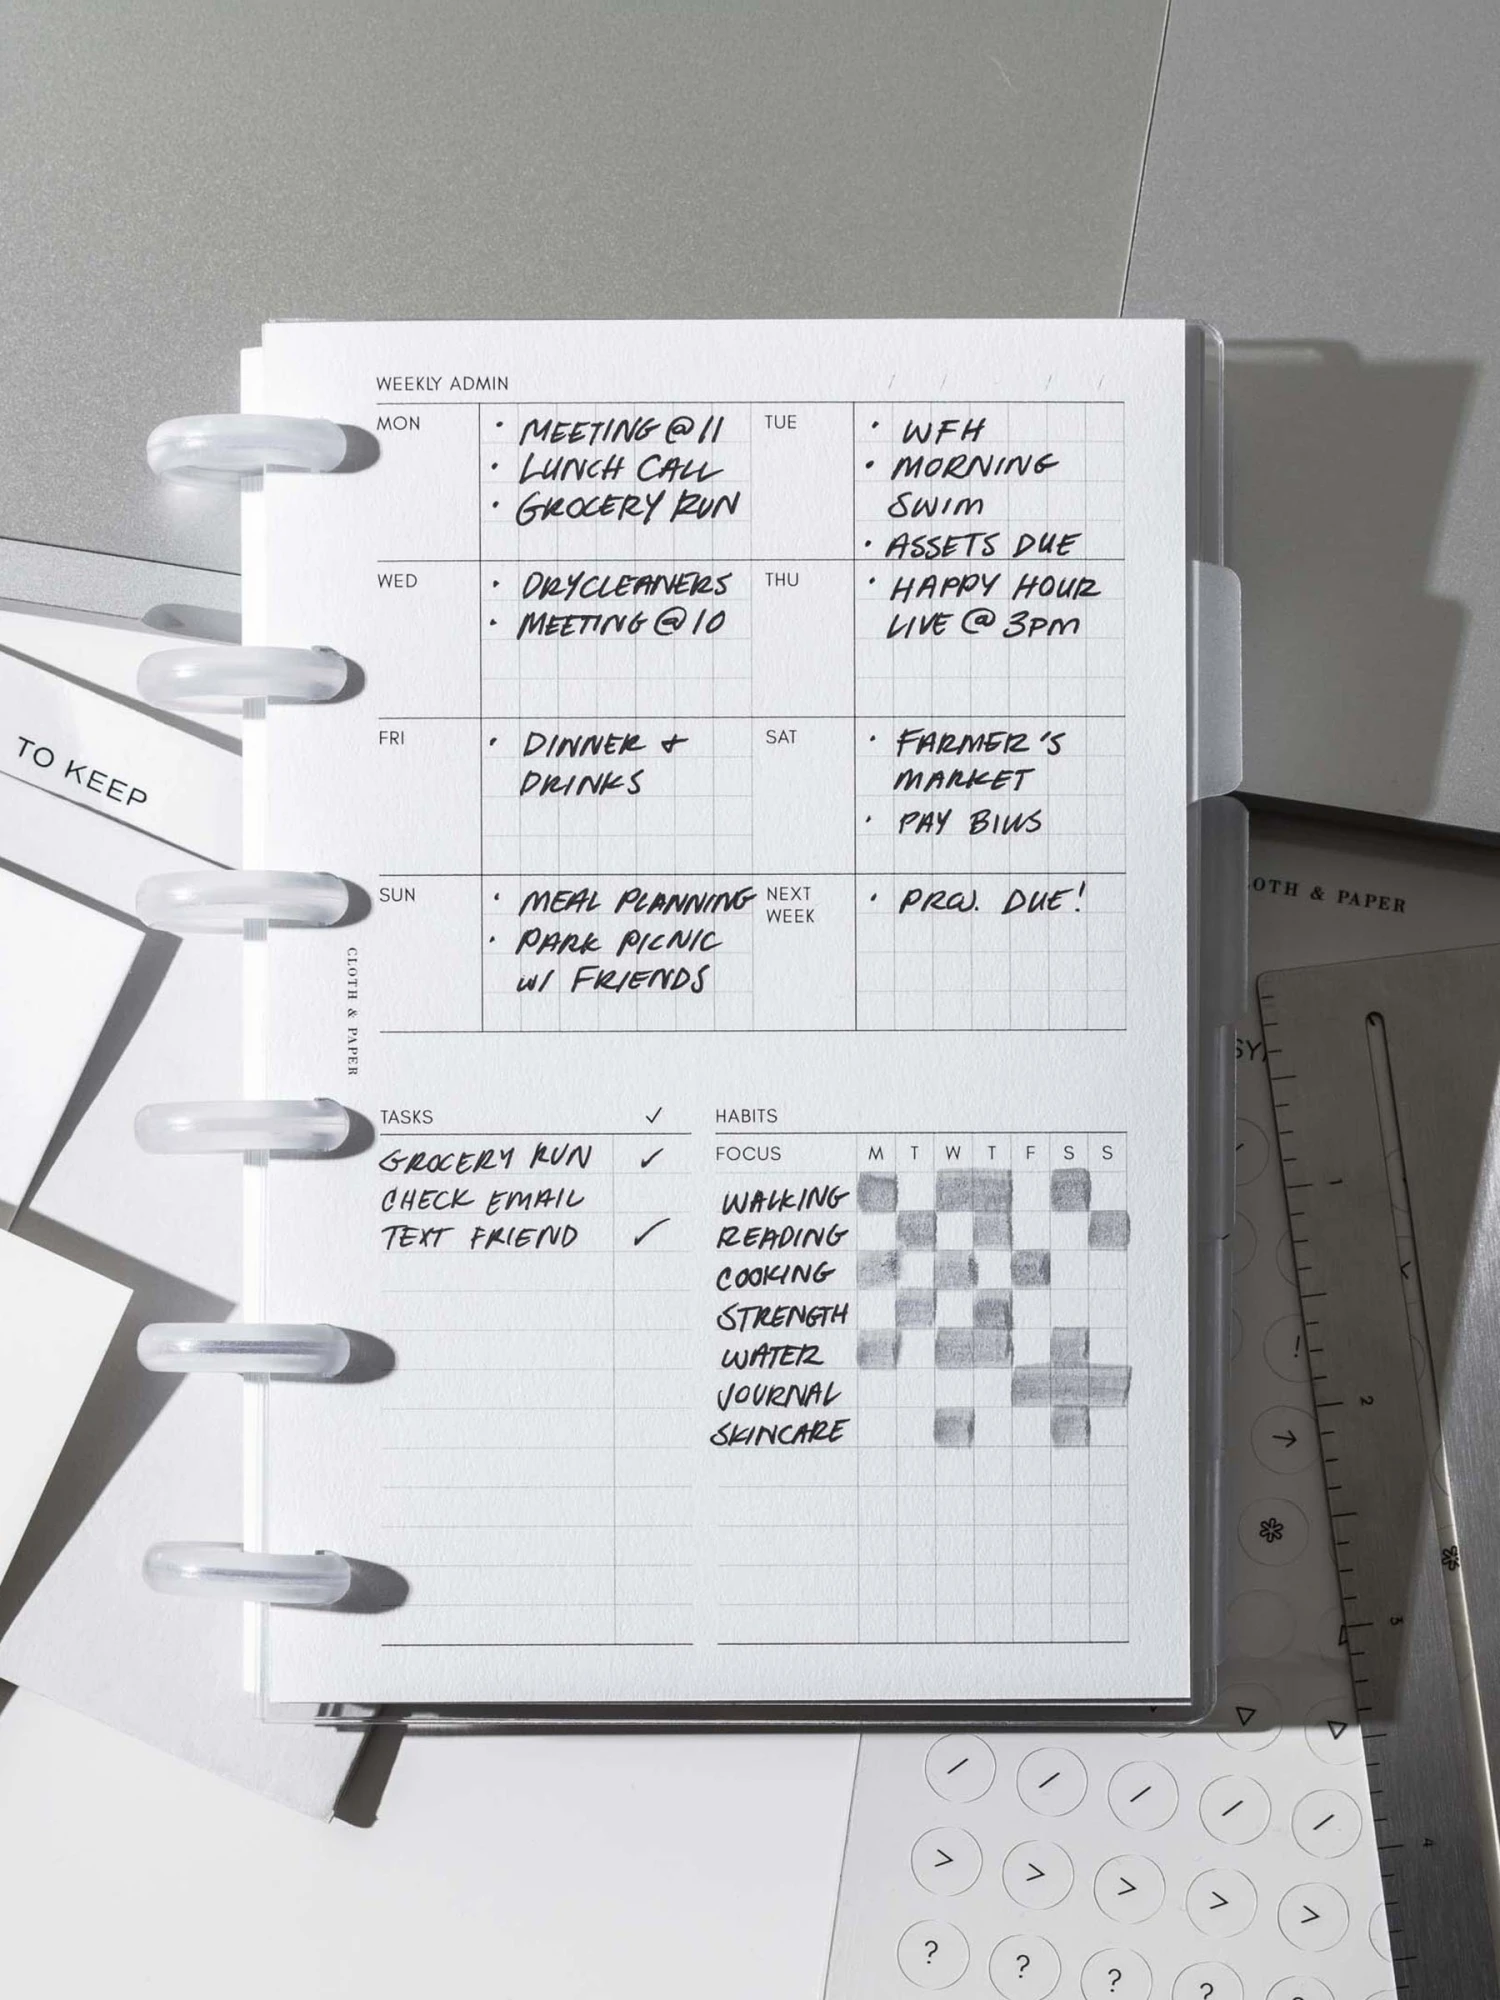 WEEKLY ADMIN / / / /
MON
• MEETING @ 11
• LUNCH CALL
• GROCERY RUN
TUE
• WFH
• MORNING
SWIM
• ASSETS DUE
WED
• DRYCLEANERS
• MEETING @ 10
THU
• HAPPY HOUR
LIVE @ 3PM
FRI
• DINNER &
DRINKS
SAT
• FARMER'S
MARKET
• PAY BILLS
SUN
• MEAL PLANNING
• PARK PICNIC
W/ FRIENDS
NEXT
WEEK
• PROJ. DUE!
CLOTH & PAPER
TASKS ✓
GROCERY RUN ✓
CHECK EMAIL
TEXT FRIEND ✓
HABITS
FOCUS M T W T F S S
WALKING
READING
COOKING
STRENGTH
WATER
JOURNAL
SKINCARE
TO KEEP
OTH & PAPER
1
2
3
4
/ / / / /
> > > > >
? ? ? ?